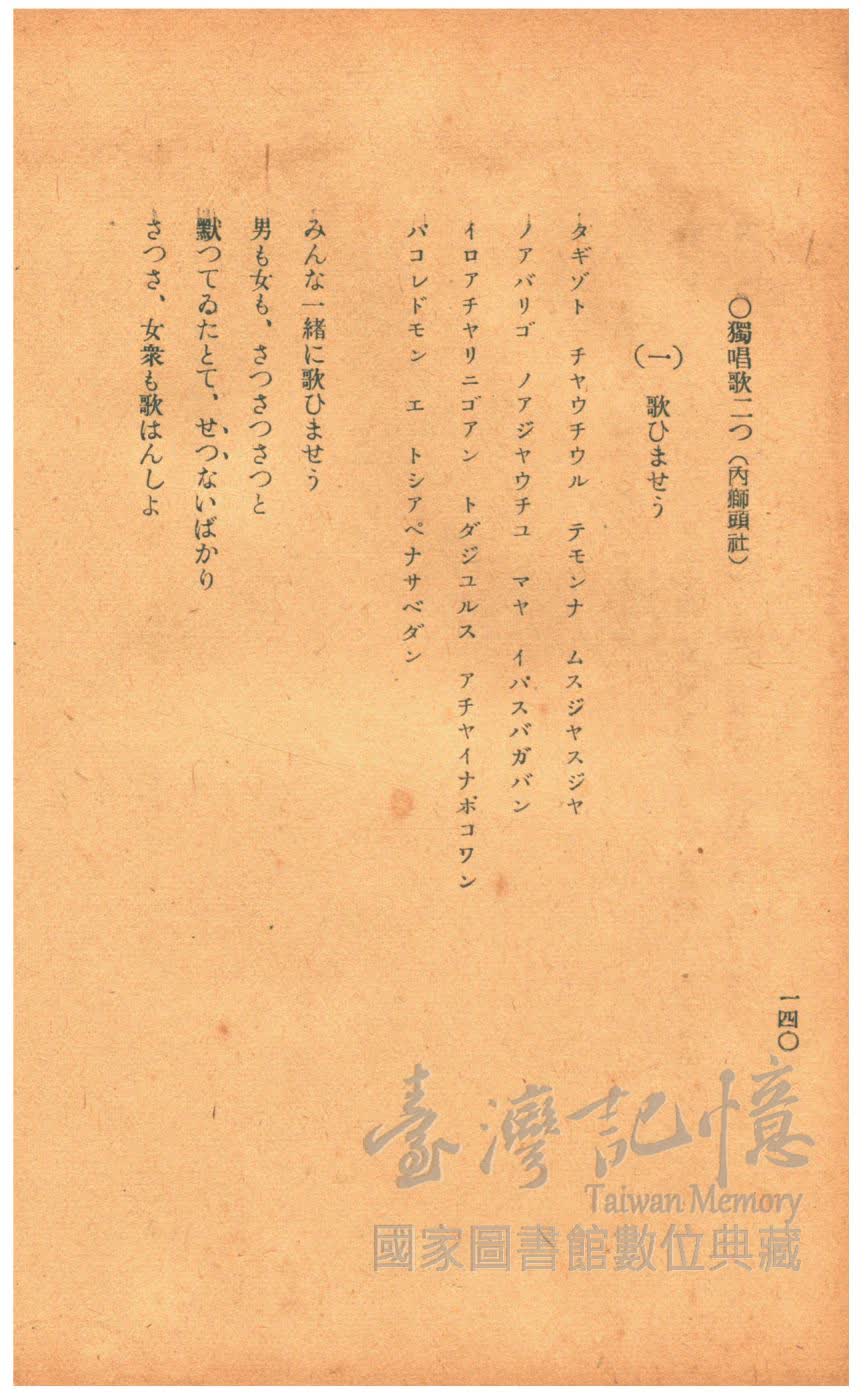 一四〇
〇獨唱歌二つ（內獅頭社）
（一）　歌ひませう
タギゾト　チヤウチウル　テモンナ　ムスジヤスジヤ
ノアバリゴ　ノアジヤウチユ　マヤ　イパスバガバン
イロアチヤリニゴアン　トダジユルス　アチヤイナポコワン
パコレドモン　エ　トシアペナサベダン
みんな一緒に歌ひませう
男も女も、さつさつさつと
默つてゐたとて、せつないばかり
さつさ、女衆も歌はんしよ
臺灣記憶
Taiwan Memory
國家圖書館數位典藏